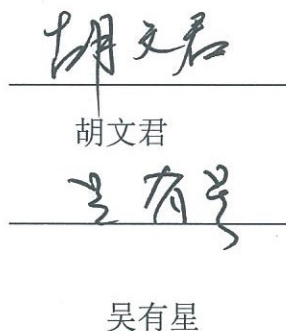 胡文君
胡文君
吴有星
吴有星